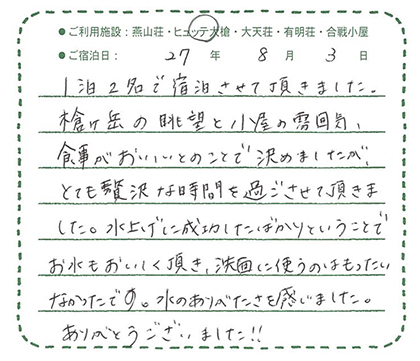 ●ご利用施設：燕山荘・ヒュッテ大槍・大天荘・有明荘・合戦小屋
●ご宿泊日： 27 年 8 月 3 日
1泊2名で宿泊させて頂きました。
槍ヶ岳の眺望と小屋の雰囲気、
食事がおいいいとのことで決めましたが、
とても贅沢な時間を過ごさせて頂きま
した。水上げに成功したばかりということで
お水もおいしく頂き、洗面に使うのはもったい
なかったです。水のありがたさを感じました。
ありがとうございました!!